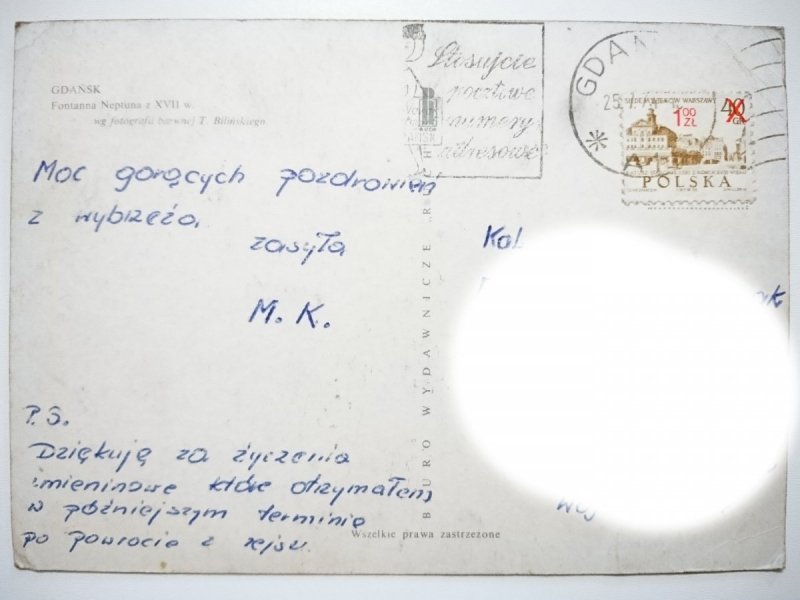 GDAŃSK
Fontanna Neptuna z XVII w.
wg fotografa barwnej T. Bilińskiego
Moc gorących pozdrowień
z wybrzeża,
zasyła
M. K.
P.S.
Dziękuję za życzenia
imieninowe które otrzymałem
w późniejszym terminie
po powrocie z rejsu.
BIURO WYDAWNICZE RUCH
Wszelkie prawa zastrzeżone
Stosujcie
pocztowe
numery
adresowe
GDAŃ
SIEDEM WIEKÓW WARSZAWY
1,00 ZŁ
40 GR
POLSKA
Kob